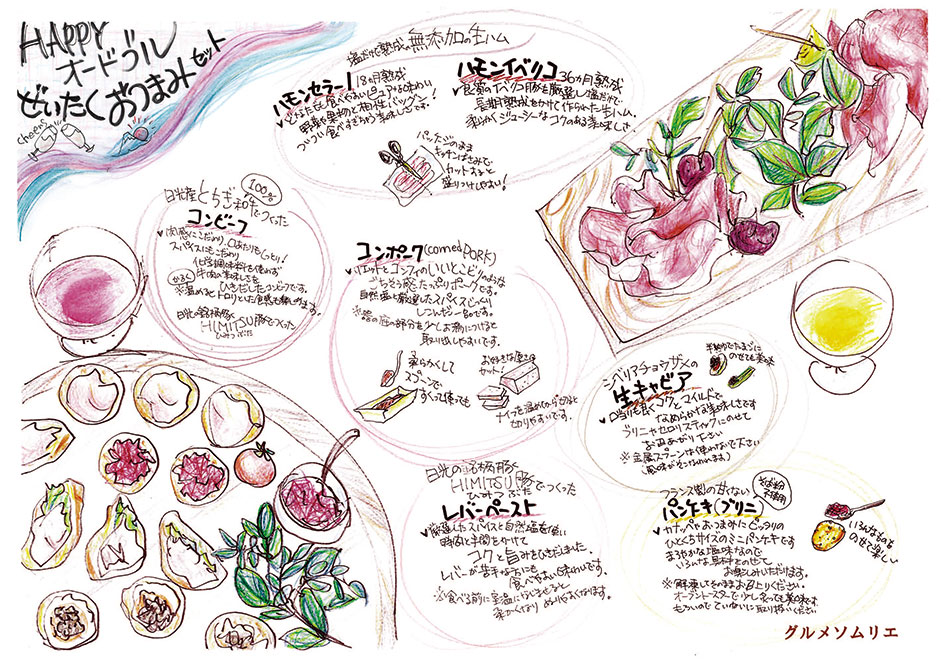 HAPPY
オードブル
ぜいたくおつまみセット
cheers
塩だけで熟成の無添加の生ハム
ハモンセラーノ 18ヵ月熟成
どなたでも食べやすいピュアな味わい
野菜や果物と相性バツグン!
ついつい食べすぎちゃう美味しさです!
ハモンイベリコ 36ヵ月熟成
良質のイベリコ豚を厳選し塩だけで
長期熟成をかけて作られた生ハム。
柔らかくジューシーなコクのある美味しさ
パッケージのまま
キッチンばさみで
カットすると
盛りつけしやすい!
100%
日光産とちぎ和牛でつくった
コンビーフ
肉感にこだわり、口あたりもしっとり!
スパイスにもこだわり
化学調味料を使わず
牛肉の美味しさを
ひきだしたコンビーフです。
※かるく温めるとトロリとした食感も楽しめます!
日光の銘柄豚
HIMITSU豚でつくった
ひみつぶた
コンポーク(corned PORK)
リエットとコンフィのいいとこどりのような
ごちそう感たっぷりポークです。
自然塩と厳選したスパイスでじっくり
しこんだ一品です。
※器の底の部分を少しお湯につけると
取り出しやすいです。
柔らかくして
スプーンで
すくって使っても
お好きな厚さに
カット!
ナイフを温めながらカットすると
切りやすいです。
シベリアチョウザメの
生キャビア
口当りも良くコクとマイルドで
なめらかする美味しさです
ブリニやセロリスティックにのせて
お召しあがり下さい
※金属スプーンは使わないで下さい
(風味がそこなわれます)
半熟ゆでたまごに
のせても美味
日光の銘柄豚
HIMITSU豚でつくった
ひみつぶた
レバーペースト
厳選したスパイスと自然塩を使い
時間と手間をかけて
コクと旨みをひきだしました。
レバーが苦手な方にも
食べやすい味わいです。
※食べる前に室温にもどすると
柔らかくなりぬりやすくなります。
フランス製の甘くない
そば粉
不使用
パンケーキ(ブリニ)
カナッペやおつまみにピッタリの
ひとくちサイズのミニパンケーキです
まろやかな塩味なので
いろんな具材をのせて
お楽しみいただけます。
※解凍してそのままお召上りください。
オーブントースターで少し炙っても美味です
もろいのでていねいに取り扱いください
いろんなもの
のせて楽しい
グルメソムリエ